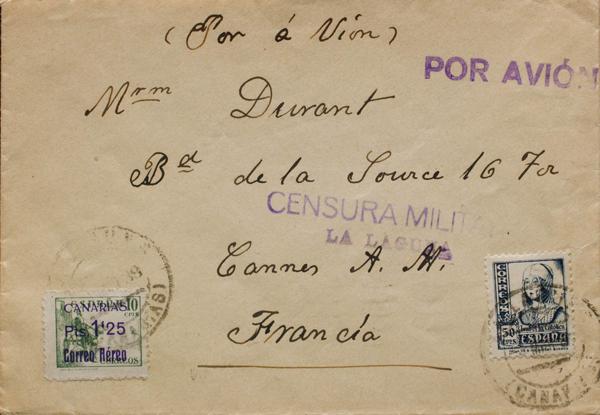 (Por á Vión)
POR AVIÓN
Mrm Durant
Bd de la Source 16 7or
CENSURA MILITA
LA LAGUNA
Cannes A. M.
Francía
CANARIAS
10
Pts 1'25
Correo Aéreo
CORREOS
CORREOS
50
CTS.
ESPAÑA
(CANA